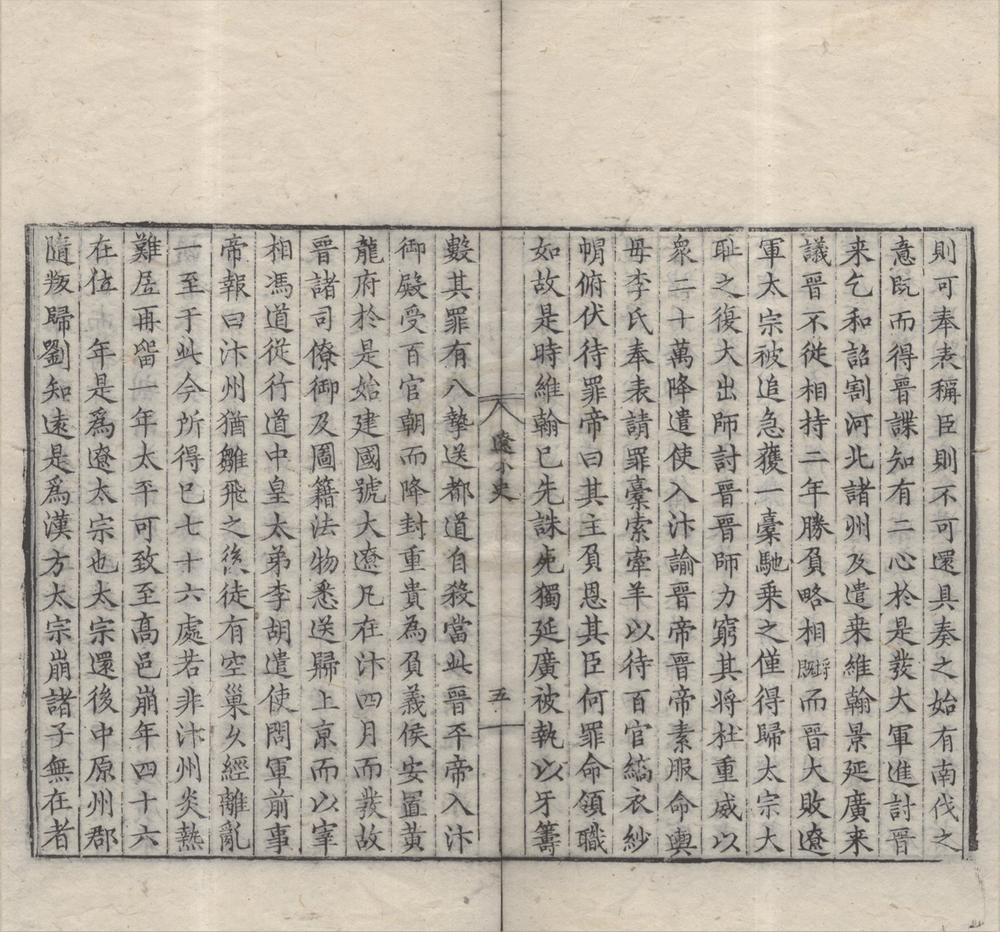 則可奉表稱臣則不可還具奏之始有南伐之
意既而得晉諜知有二心於是發大軍進討晉
来乞和詔割河北諸州及遣桒維翰景延廣来
議晉不從相持二年勝負略相將既而晉大敗遼
軍太宗被追急獲一槖馳乗之僅得歸太宗大
耻之復大出師討晉晉師力窮其將杜重威以
衆二十萬降遣使入汴諭晉帝晉帝素服命輿
母李氏奉表請罪槖索牽羊以待百官縞衣紗
帽俯伏待罪帝曰其主負恩其臣何罪命領職
如故是時維翰已先誅死獨延廣被執以牙籌
遼小史
五
數其罪有八摯送都道自殺當此晉平帝入汴
御殿受百官朝而降封重貴為負義侯安置黄
龍府於是始建國號大遼凡在汴四月而發故
晉諸司僚御及圖籍法物悉送歸上亰而以宰
相馮道從行道中皇太弟李胡遣使問軍前事
帝報曰汴州猶雛飛之後徒有空巢乆經離亂
一至于此今所得已七十六處若非汴州炎熱
難居再留一年太平可致至高邑崩年四十六
在位 年是爲遼太宗也太宗還後中原州郡
隨叛歸劉知遠是爲漢方太宗崩諸子無在者